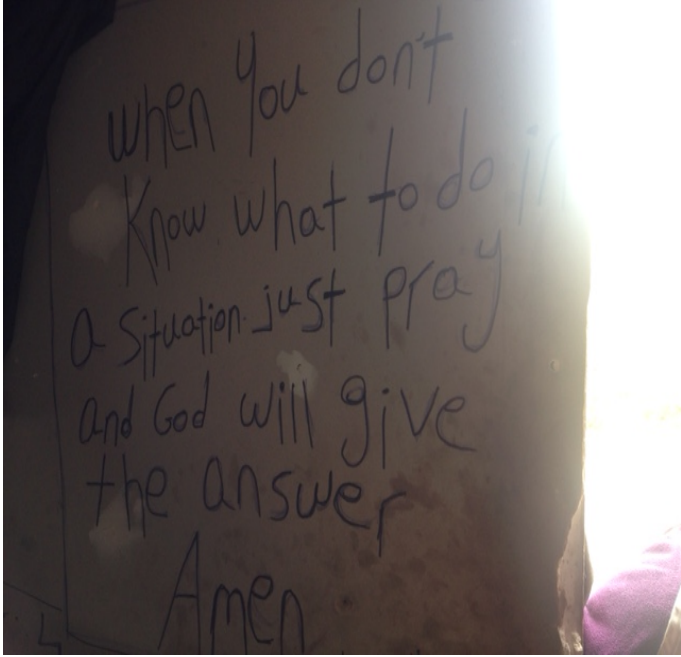 when you don't
Know what to do in
a situation. just pray
and God will give
the answer
Amen